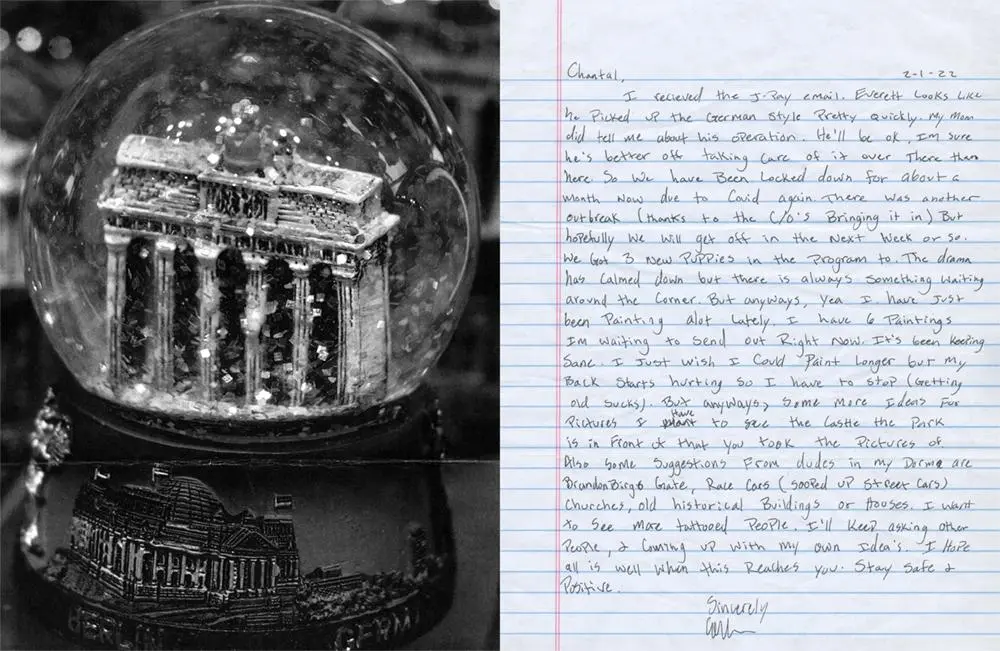 BERLIN
GERM
Chantal,
2-1-22
I recieved the J-Pay email. Everett Looks Like
he Picked up the German Style Pretty quickly. My Mom
did tell me about his operation. He'll be ok, Im sure
he's better off taking Care of it over There then
here. So We have Been Locked down for about a
month Now due to Covid again. There was another
outbreak (thanks to the C/O's Bringing it in) But
hopefully We will get off in the Next Week or So.
We Got 3 New Puppies in the Program to. The drama
has Calmed down but there is always Something Waiting
around the Corner. But anyways, Yea I have Just
been Painting alot Lately. I have 6 Paintings
Im waiting to Send out Right Now. It's been keeping
Sane. I Just wish I Could Paint Longer but My
Back Starts hurting So I have to stop (Getting
old Sucks). But anyways, Some more Ideas For
Pictures I Have to see the Castle the Park
is in Front of that You took the Pictures of
Also Some Suggestions From dudes in my Dorm are
BrandonBirgs Gate, Race Cars (Sooped up Street Cars)
Churches, old historical Buildings or Houses. I want
to See more tattooed People. I'll Keep asking other
People, & Coming up With my own Idea's. I Hope
all is well When this Reaches you. Stay Safe &
Positive.
Sincerely